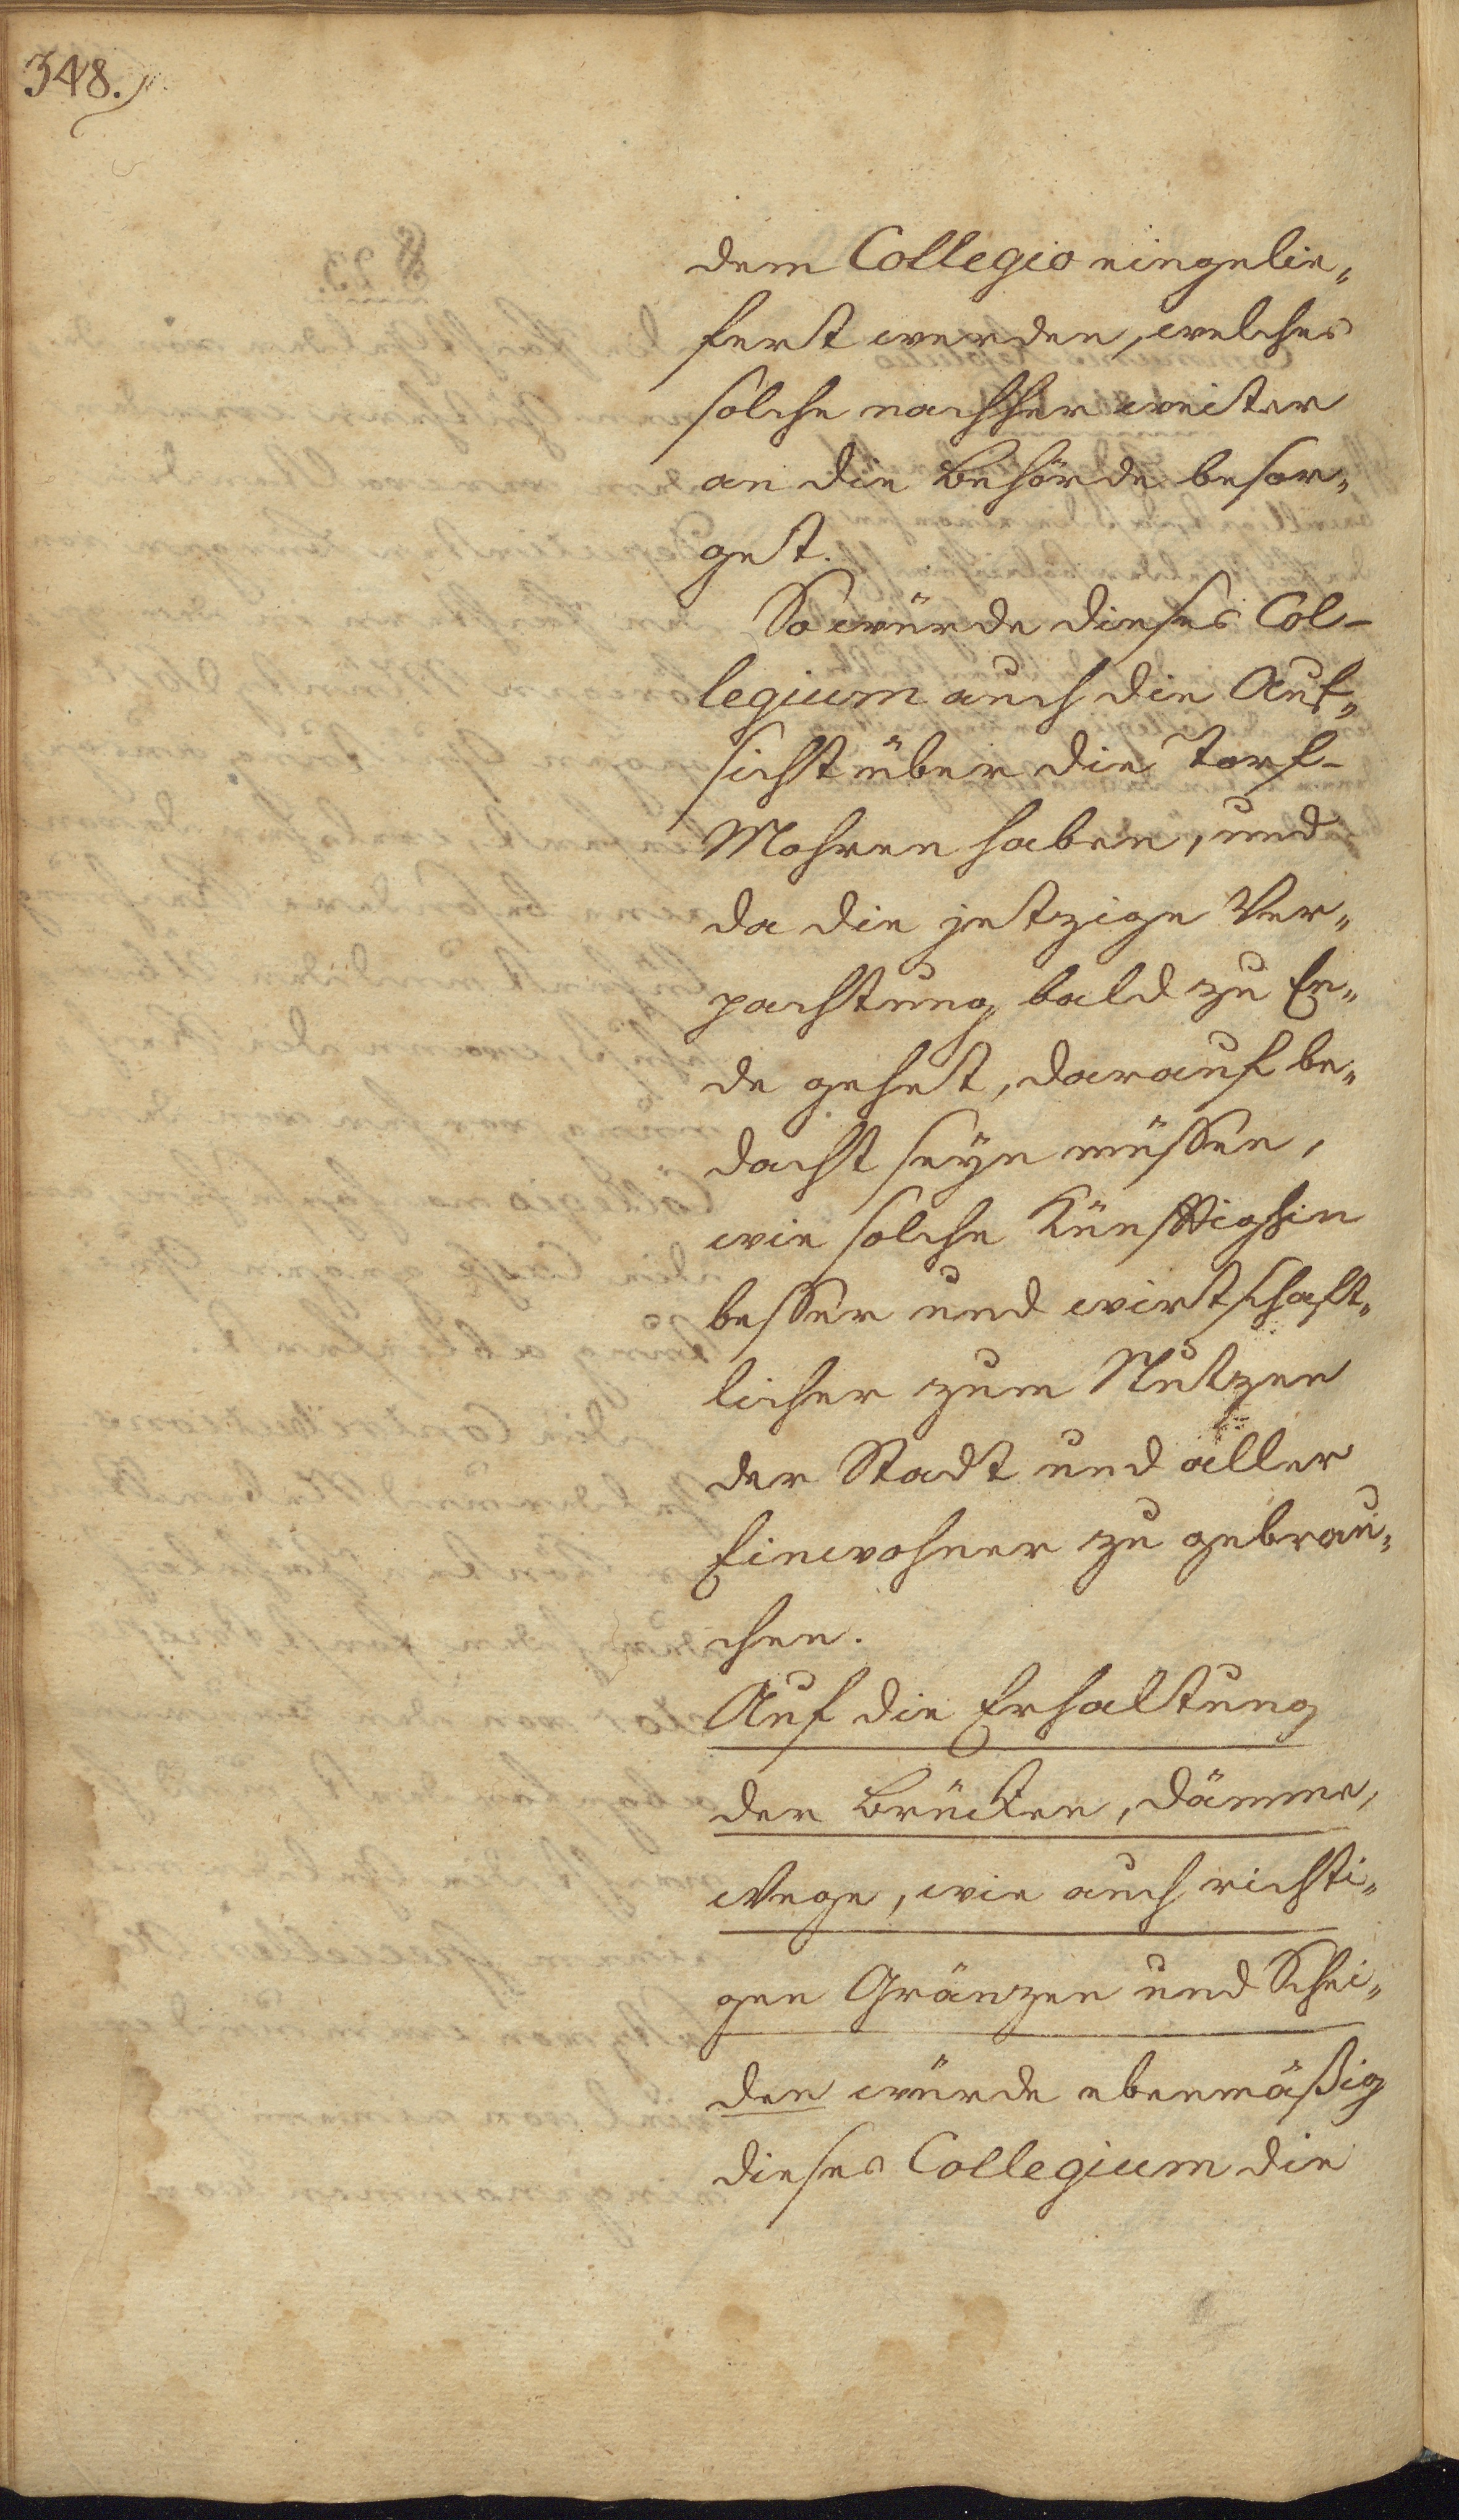 348.
dem Collegio eingelie„
fert werden, welches
solche nachher weiter
an die Behörde besor„
get.
So würde dieses Col-
legium auch die Auf„
sicht über die Torf-
Mohren haben, und
da die jetzige Ver„
pachtung bald zu En„
de gehet, darauf be„
dacht seyn müssen,
wie solche Künftighin
besser und wirtschaft„
licher zum Nutzen
der Stadt und aller
Einwohner zu gebrau„
chen.
Auf die Erhaltung
der Brücken, Dämme,
Wege, wie auch richti„
gen Gränzen und Schei„
den würde ebenmäßig
dieses Collegium die